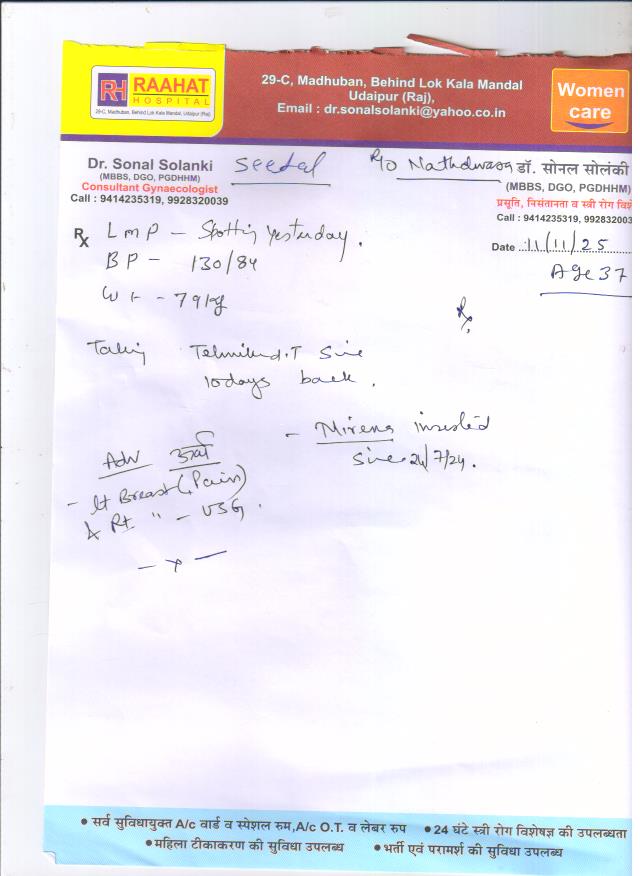 RH RAAHAT
HOSPITAL
29-C, Madhuban, Behind Lok Kala Mandal, Udaipur (Raj)
29-C, Madhuban, Behind Lok Kala Mandal
Udaipur (Raj),
Email : dr.sonalsolanki@yahoo.co.in
Women
care
Dr. Sonal Solanki
(MBBS, DGO, PGDHHM)
Consultant Gynaecologist
Call : 9414235319, 9928320039
Seetal
R/o Nathdwara
डॉ. सोनल सोलंकी
(MBBS, DGO, PGDHHM)
प्रसूति, निसंतानता व स्त्री रोग विशे
Call : 9414235319, 992832003
Date 11/11/25
Age 37
Rx LMP - Spotting yesterday.
BP - 130/84
Wt - 79kg
Rx
Taking since
10days back.
- Mirena inserted
since 24/7/24.
Adv
- Lt Breast (Pain)
& Rt " - USG.
- x -
• सर्व सुविधायुक्त A/c वार्ड व स्पेशल रुम,A/c O.T. व लेबर रुप • 24 घंटे स्त्री रोग विशेषज्ञ की उपलब्धता
• महिला टीकाकरण की सुविधा उपलब्ध • भर्ती एवं परामर्श की सुविधा उपलब्ध